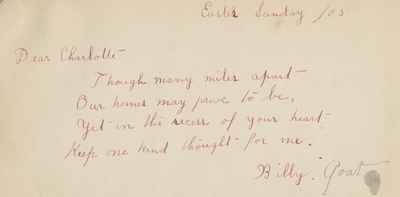 Easter Sunday /03
Dear Charlotte
Though many miles apart -
Our homes may prove to be,
Yet in the recess of your heart -
Keep one kind thought for me.
Billy. Goat